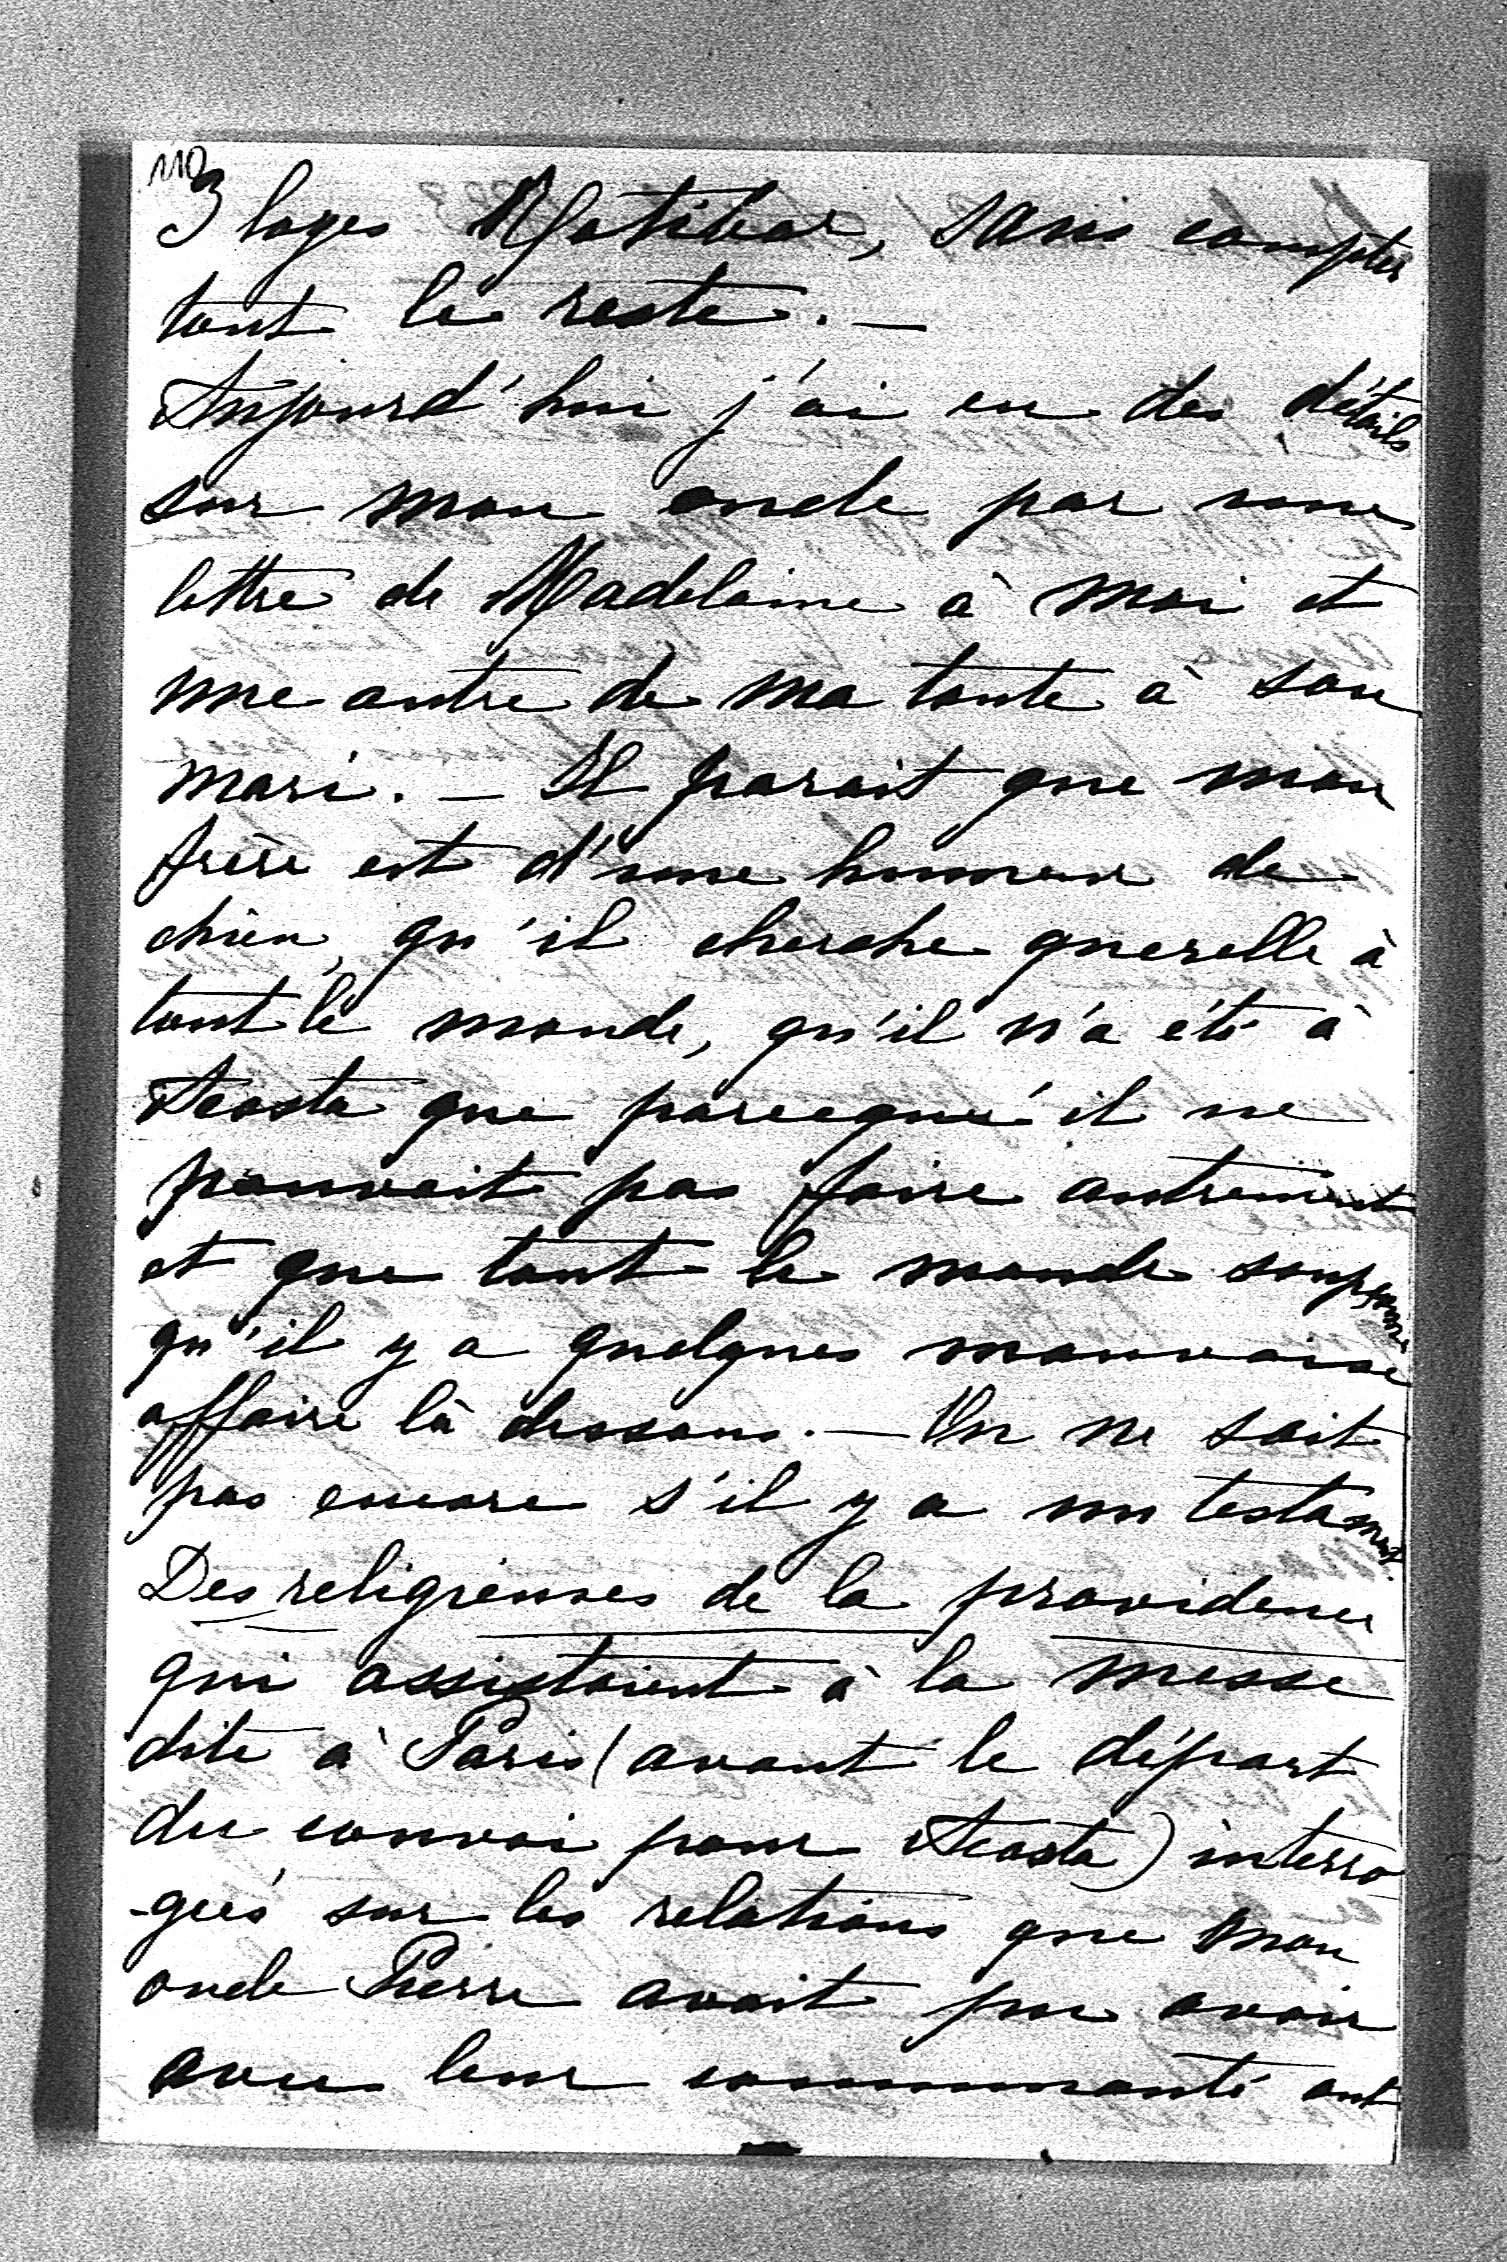 110
3 loges Matibar, sans compter
tout le reste. —
Aujourd'hui j'ai eu des détails
sur mon oncle par une
lettre de Madelaine à moi et
une autre de ma tante à son
mari. — Il parait que mon
frère est d'une humeur de
chien, qu'il cherche querelle à
tout le monde, qu'il n'a été à
Acosta que parcequ'il ne
pouvait pas faire autrement
et que tout le monde soupçonne
qu'il y a quelques mauvaise
affaire là dessous. — On ne sait
pas encore s'il y a un testament.
Des religieuses de la providence
qui assistaient à la messe
dite à Paris (avant le départ
du convoi pour Acosta) interro
-gées sur les relations que mon
oncle Pierre avait pu avoir
avec leur communauté ont